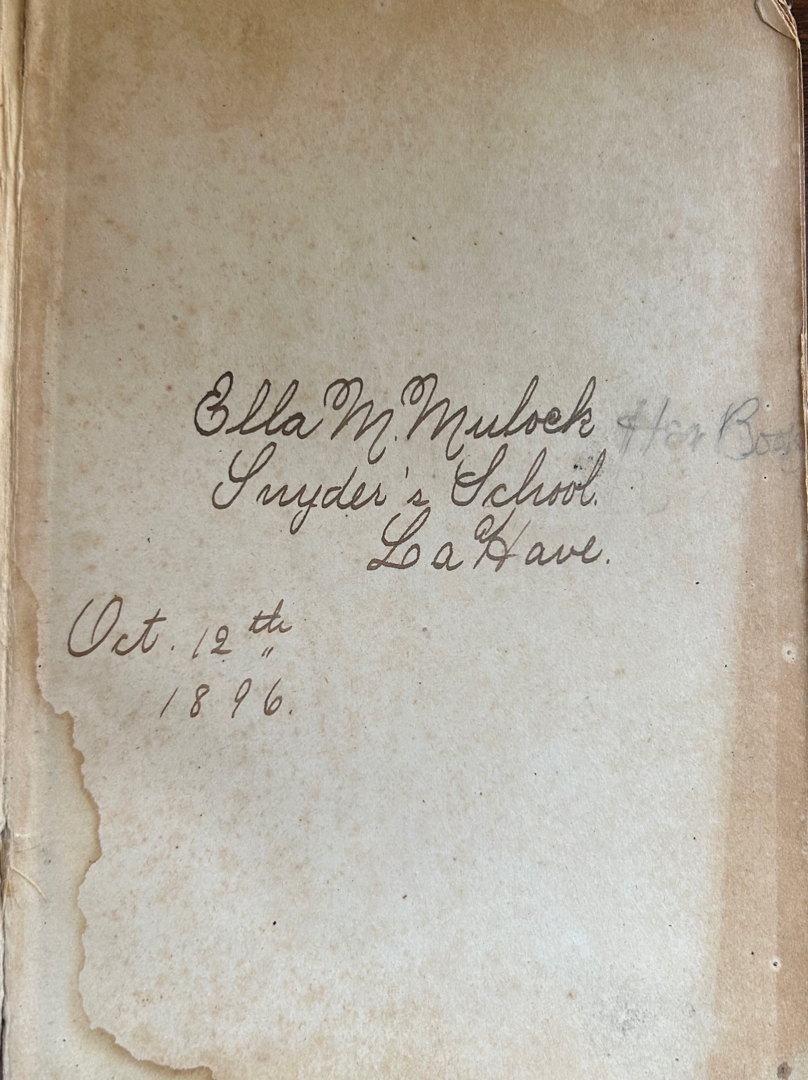 Ella M. Mulock Her Book
Snyder's School.
La Have.
Oct. 12th
1896.